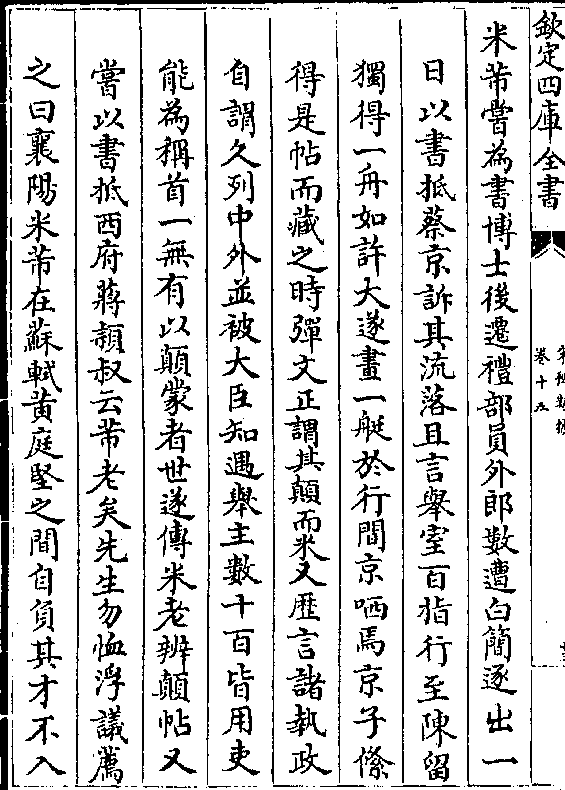 欽定四庫全書
卷十五
米芾嘗為書博士後遷禮部員外郎數遭白簡逐出一
日以書抵蔡京訴其流落且言舉室百指行至陳留
獨得一舟如許大遂畫一艇於行間京哂焉京子絛
得是帖而藏之時彈文正謂其顛而米又歴言諸執政
自謂久列中外並被大臣知遇舉主數十百皆用吏
能為稱首一無有以顛蒙者世遂傳米老辨顛帖又
嘗以書抵西府蔣頴叔云芾老矣先生勿恤浮議薦
之曰襄陽米芾在蘇軾黄庭堅之間自負其才不入